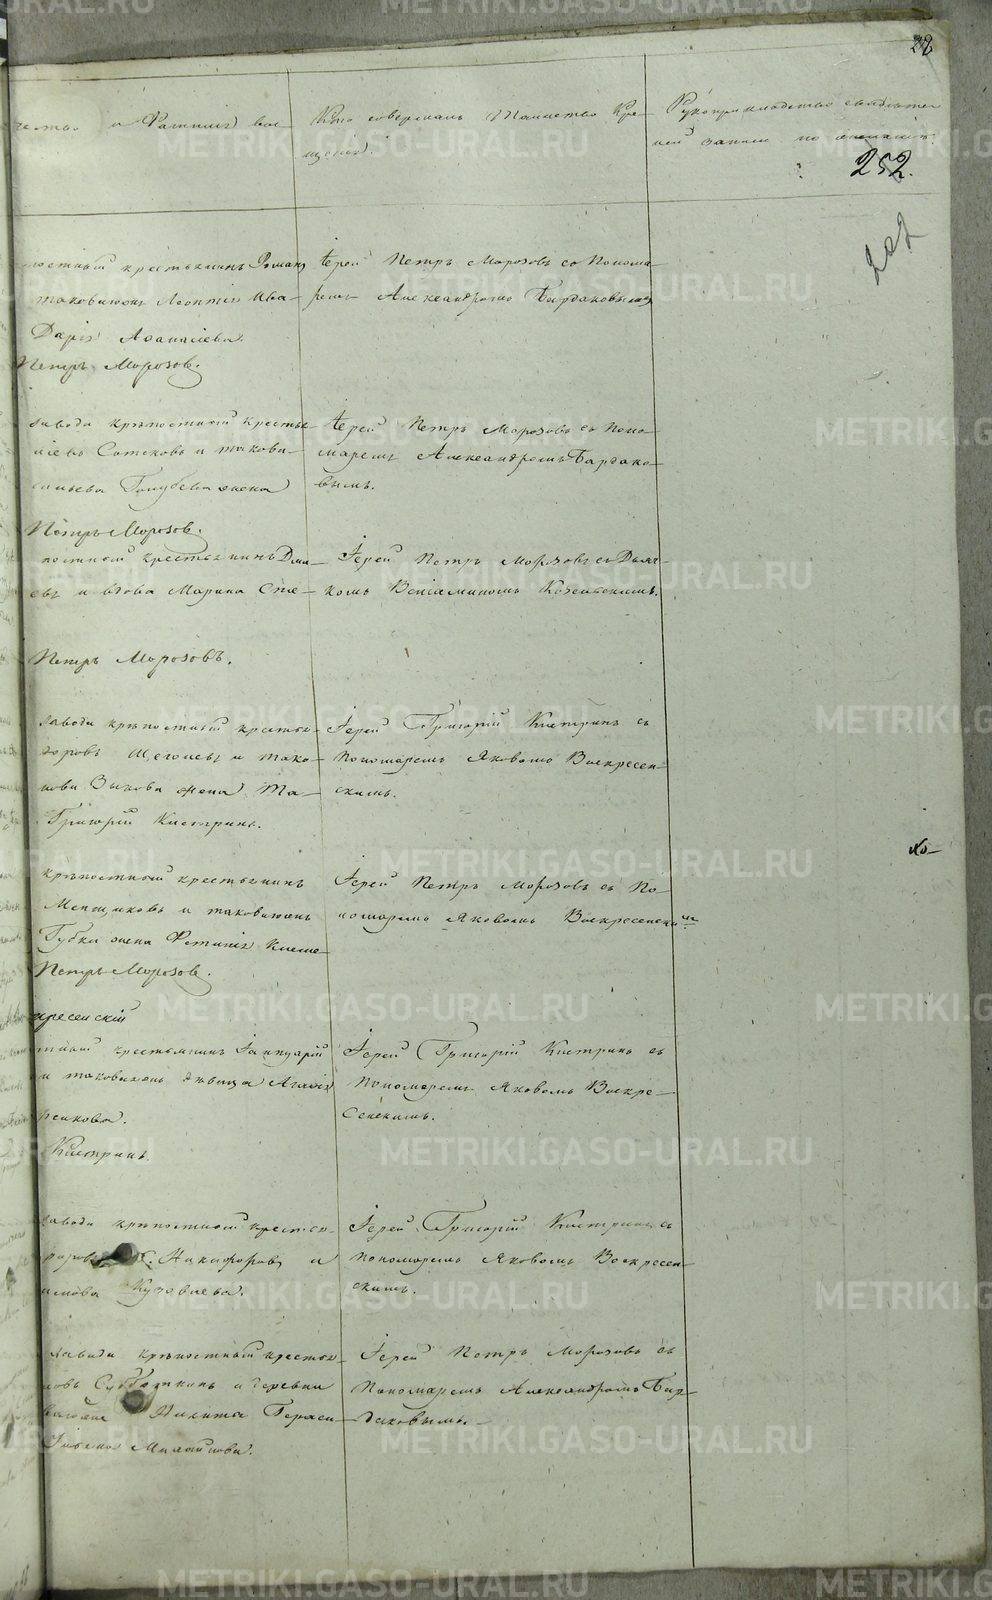 28
чество и Фамилия вос-
Кто совершалъ Таинство Кре-
щенія.
Рукоприкладство свидѣте-
лей записи по желанію.
252.
202
крестьянинъ Романъ
таковаяжъ Леонтія Ива-
Дарія Аѳанасіева.
Петръ Морозов.
Іерей Петръ Морозовъ со Понома-
ремъ Александромъ Бардаковымъ
завода крѣпостной крестья-
Сотековъ и такова-
Голубева жена
Петръ Морозов.
Іерей Петръ Морозовъ съ Поно-
маремъ Александромъ Бардако-
вымъ.
постной крестьянинъ Дми-
евъ и вдова Марина Сте-
Петръ Морозовъ.
Іерей Петръ Морозовъ съ Дьяч-
комъ Веніаминомъ
завода крѣпостной крестья-
доровъ Щеголевъ и тако-
нова Зыкова жена Та-
Григорій Кистринъ.
Іерей Григорій Кистринъ съ
Пономаремъ Яковомъ Воскресен-
скимъ.
крѣпостной крестьянинъ
Менщиковъ и таковаяжъ
Губки жена Фетинія Климе-
Петръ Морозов.
Іерей Петръ Морозовъ съ По-
номаремъ Яковомъ Воскресенскимъ
кресенскій
крестьянинъ Іаннуарій
и таковаяжъ дѣвица Агаѳія
рсикова.
Кистринъ.
Іерей Григорій Кистринъ съ
Пономаремъ Яковомъ Воскре-
сенскимъ.
завода крѣпостной крестья-
Никифоровъ и
имова Кузовлева.
Іерей Григорій Кистринъ съ
пономаремъ Яковомъ Воскресен-
скимъ.
завода крѣпостной крестья-
новъ Субботкинъ и деревни
Никита Гераси-
Милайлова.
Іерей Петръ Морозовъ съ
Пономаремъ Александромъ Бар-
даковымъ.
METRIKI.GASO-URAL.RU